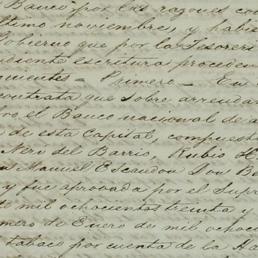 Banco por las razones con
ltimo noviembre, y habie
Gobierno que por la Tesoreri
diente escritura proceden
quientes - Primero - En
contrata que sobre arrenda
vo el Banco nacional de
de esta Capital, compuesta
Nero del Barrio, Rubio H
Manuel Escandon Don B
y fue aprovada por el Supr
de mil ochocientos treinta y
mero de Enero de mil ochoc
tabaco por cuenta de la Ha